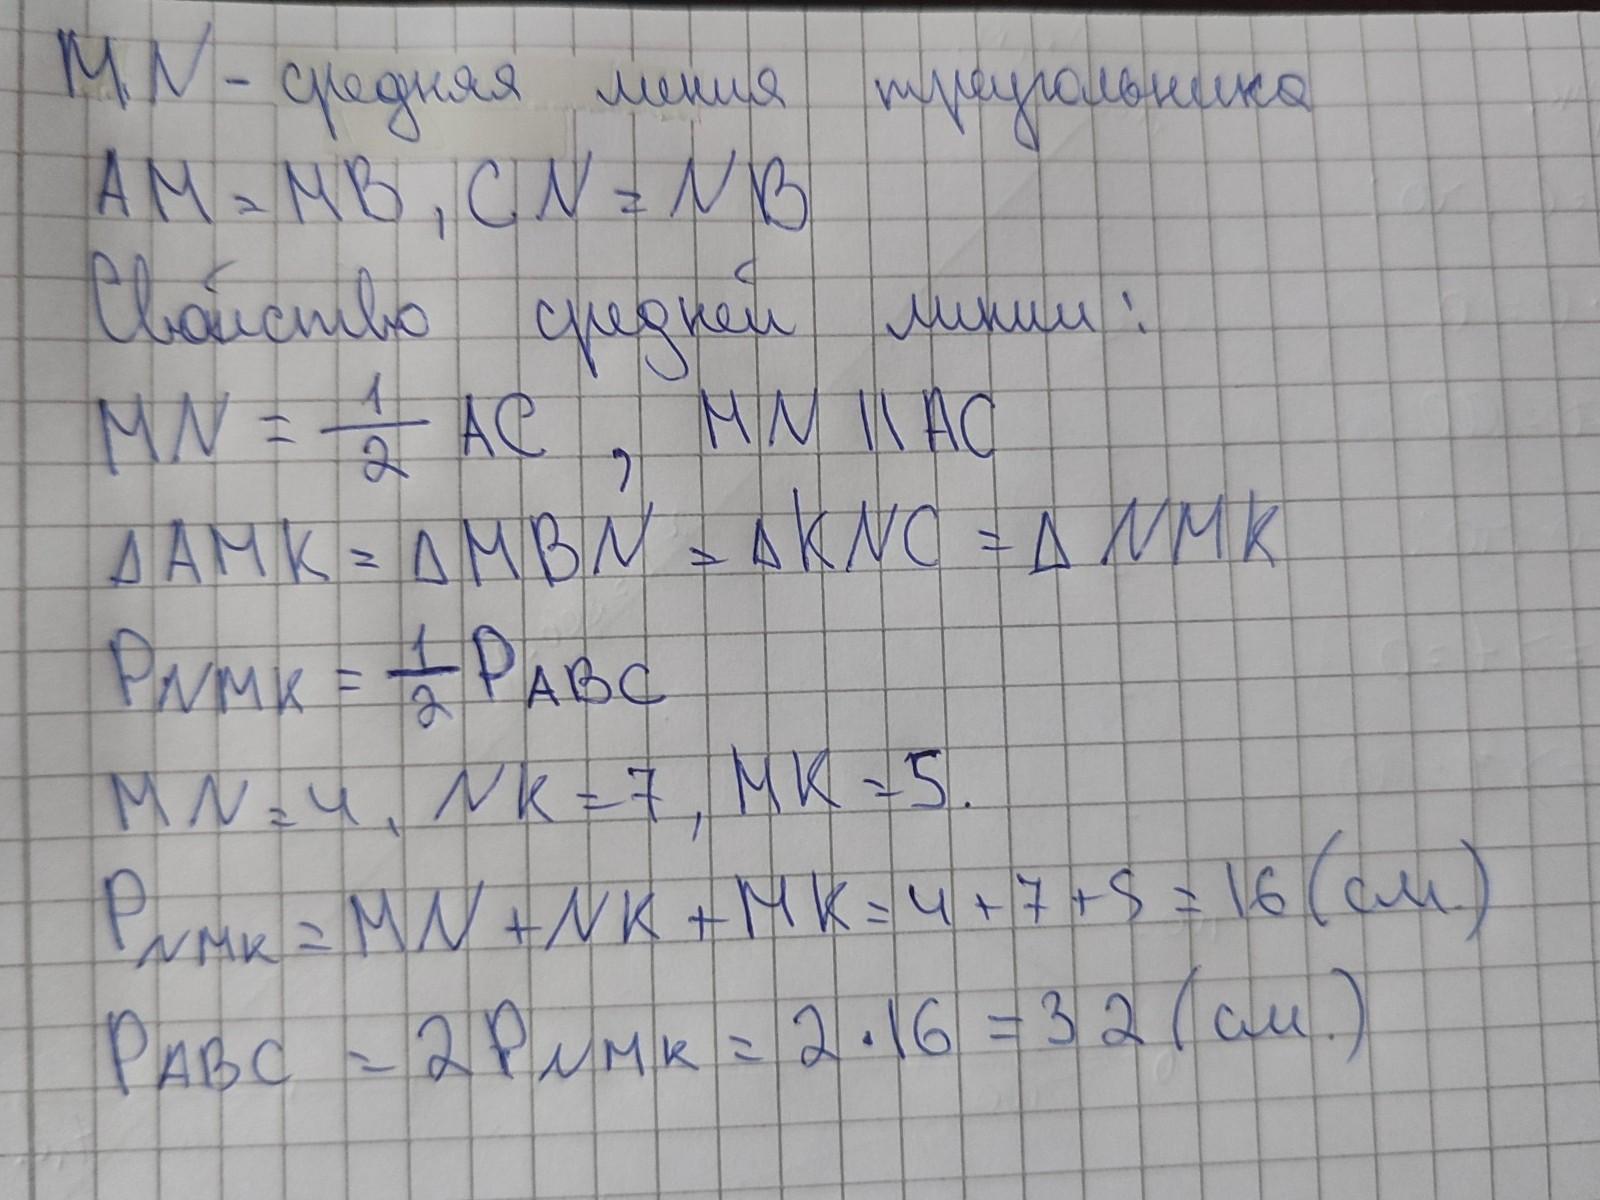 MN - средняя линия треугольника
AM = MB, CN = NB
Свойство средней линии:
MN = 1/2 AC, MN || AC
Δ AMK = Δ MBN = Δ KNC = Δ NMK
P NMK = 1/2 P ABC
MN = 4, NK = 7, MK = 5.
P NMK = MN + NK + MK = 4 + 7 + 5 = 16 (см.)
P ABC = 2 P NMK = 2 · 16 = 32 (см.)